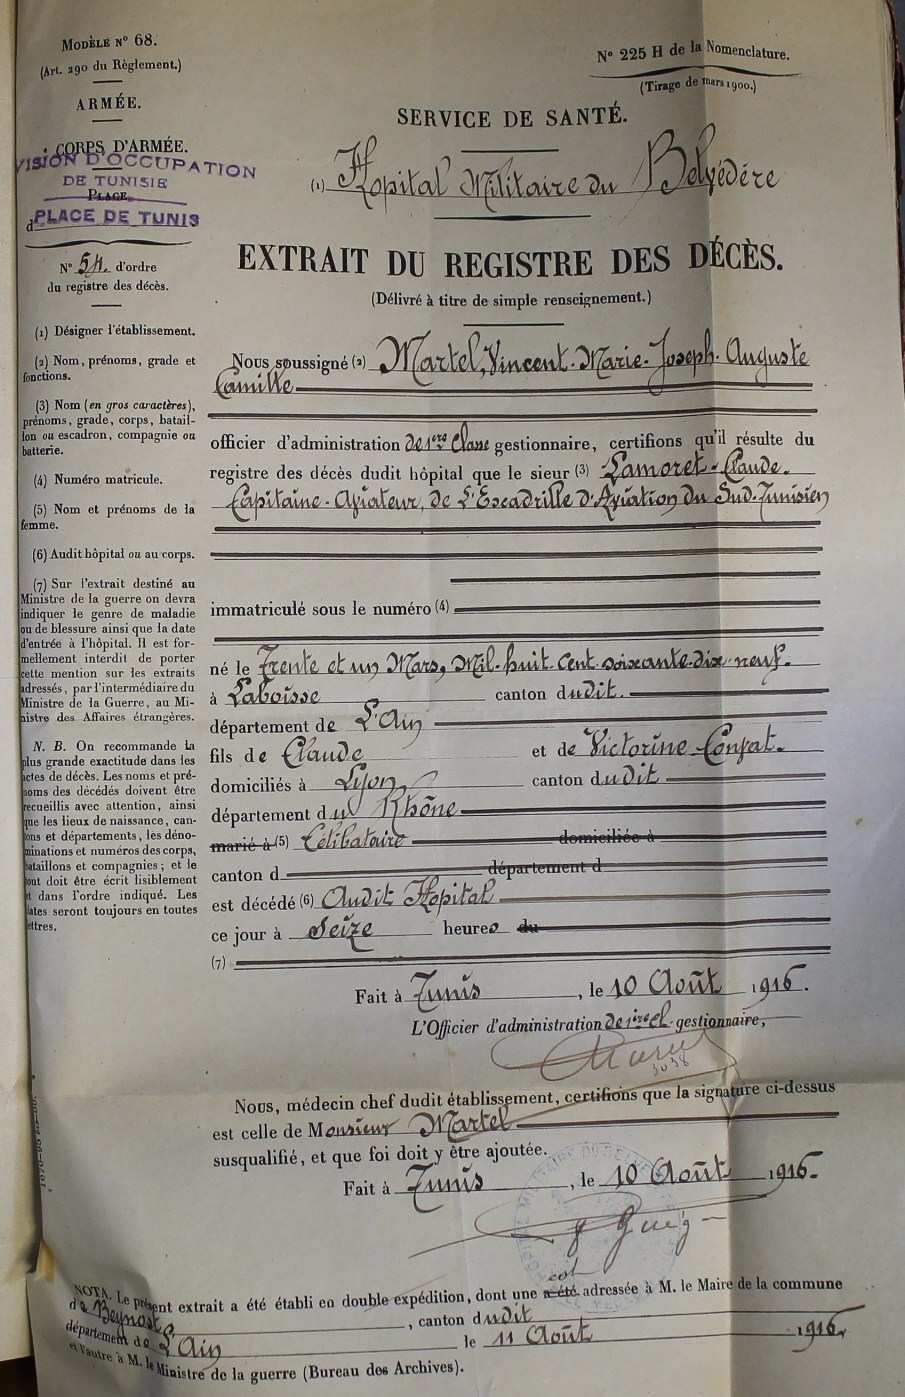 MODÈLE N° 68.
(Art. 290 du Règlement.)
ARMÉE.
CORPS D'ARMÉE.
VISION D'OCCUPATION
DE TUNISIE
PLACE
d PLACE DE TUNIS
N° 54. d'ordre
du registre des décès.
(1) Désigner l'établissement.
(2) Nom, prénoms, grade et
fonctions.
(3) Nom (en gros caractères),
prénoms, grade, corps, batail-
lon ou escadron, compagnie ou
batterie.
(4) Numéro matricule.
(5) Nom et prénoms de la
femme.
(6) Audit hôpital ou au corps.
(7) Sur l'extrait destiné au
Ministre de la guerre on devra
indiquer le genre de maladie
ou de blessure ainsi que la date
d'entrée à l'hôpital. Il est for-
mellement interdit de porter
cette mention sur les extraits
adressés, par l'intermédiaire du
Ministre de la Guerre, au Mi-
nistre des Affaires étrangères.
N. B. On recommande la
plus grande exactitude dans les
actes de décès. Les noms et pré-
noms des décédés doivent être
recueillis avec attention, ainsi
que les lieux de naissance, can-
tons et départements, les déno-
minations et numéros des corps,
bataillons et compagnies; et le
tout doit être écrit lisiblement
et dans l'ordre indiqué. Les
dates seront toujours en toutes
lettres.
N° 225 H de la Nomenclature.
(Tirage de mars 1900.)
SERVICE DE SANTÉ.
(1) Hopital Militaire du Belvédére
EXTRAIT DU REGISTRE DES DÉCÈS.
(Délivré à titre de simple renseignement.)
Nous soussigné (2) Martel, Vincent-Marie-Joseph-Auguste
Camille
officier d'administration de 1ere classe gestionnaire, certifions qu'il résulte du
registre des décès dudit hôpital que le sieur (3) Lamoret-Claude.
Capitaine-Aviateur, de L'Escadrille d'Aviation du Sud-Tunisien
immatriculé sous le numéro (4)
né le Trente et un Mars, Mil-huit-Cent-soixante-dix-neuf.
à Laboisse canton dudit.
département de L'Ain
fils de Claude et de Victorine-Confat.
domiciliés à Lyon canton dudit
département du Rhône
marié à (5) Célibataire domiciliée à
canton d département d
est décédé (6) Audit Hopital
ce jour à Seize heures du
(7)
Fait à Tunis, le 10 Août 1916.
L'Officier d'administration de 1ère cl. gestionnaire,
3038
Nous, médecin chef dudit établissement, certifions que la signature ci-dessus
est celle de Monsieur Martel
susqualifié, et que foi doit y être ajoutée.
Fait à Tunis, le 10 Août 1916.
NOTA. Le présent extrait a été établi en double expédition, dont une a été est adressée à M. le Maire de la commune
de Beynost, canton dudit
département de L'Ain le 11 Août 1916,
et l'autre à M. le Ministre de la guerre (Bureau des Archives).